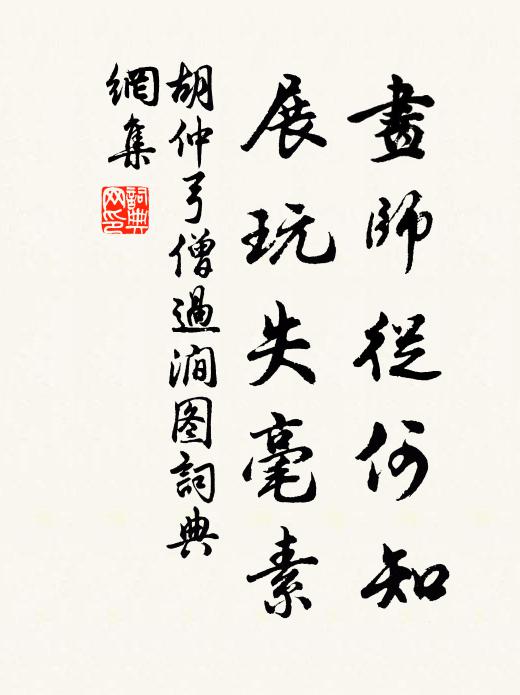 畫師從何知
展玩失毫素
胡仲弓僧過澗图詞典
網集
詞典网印